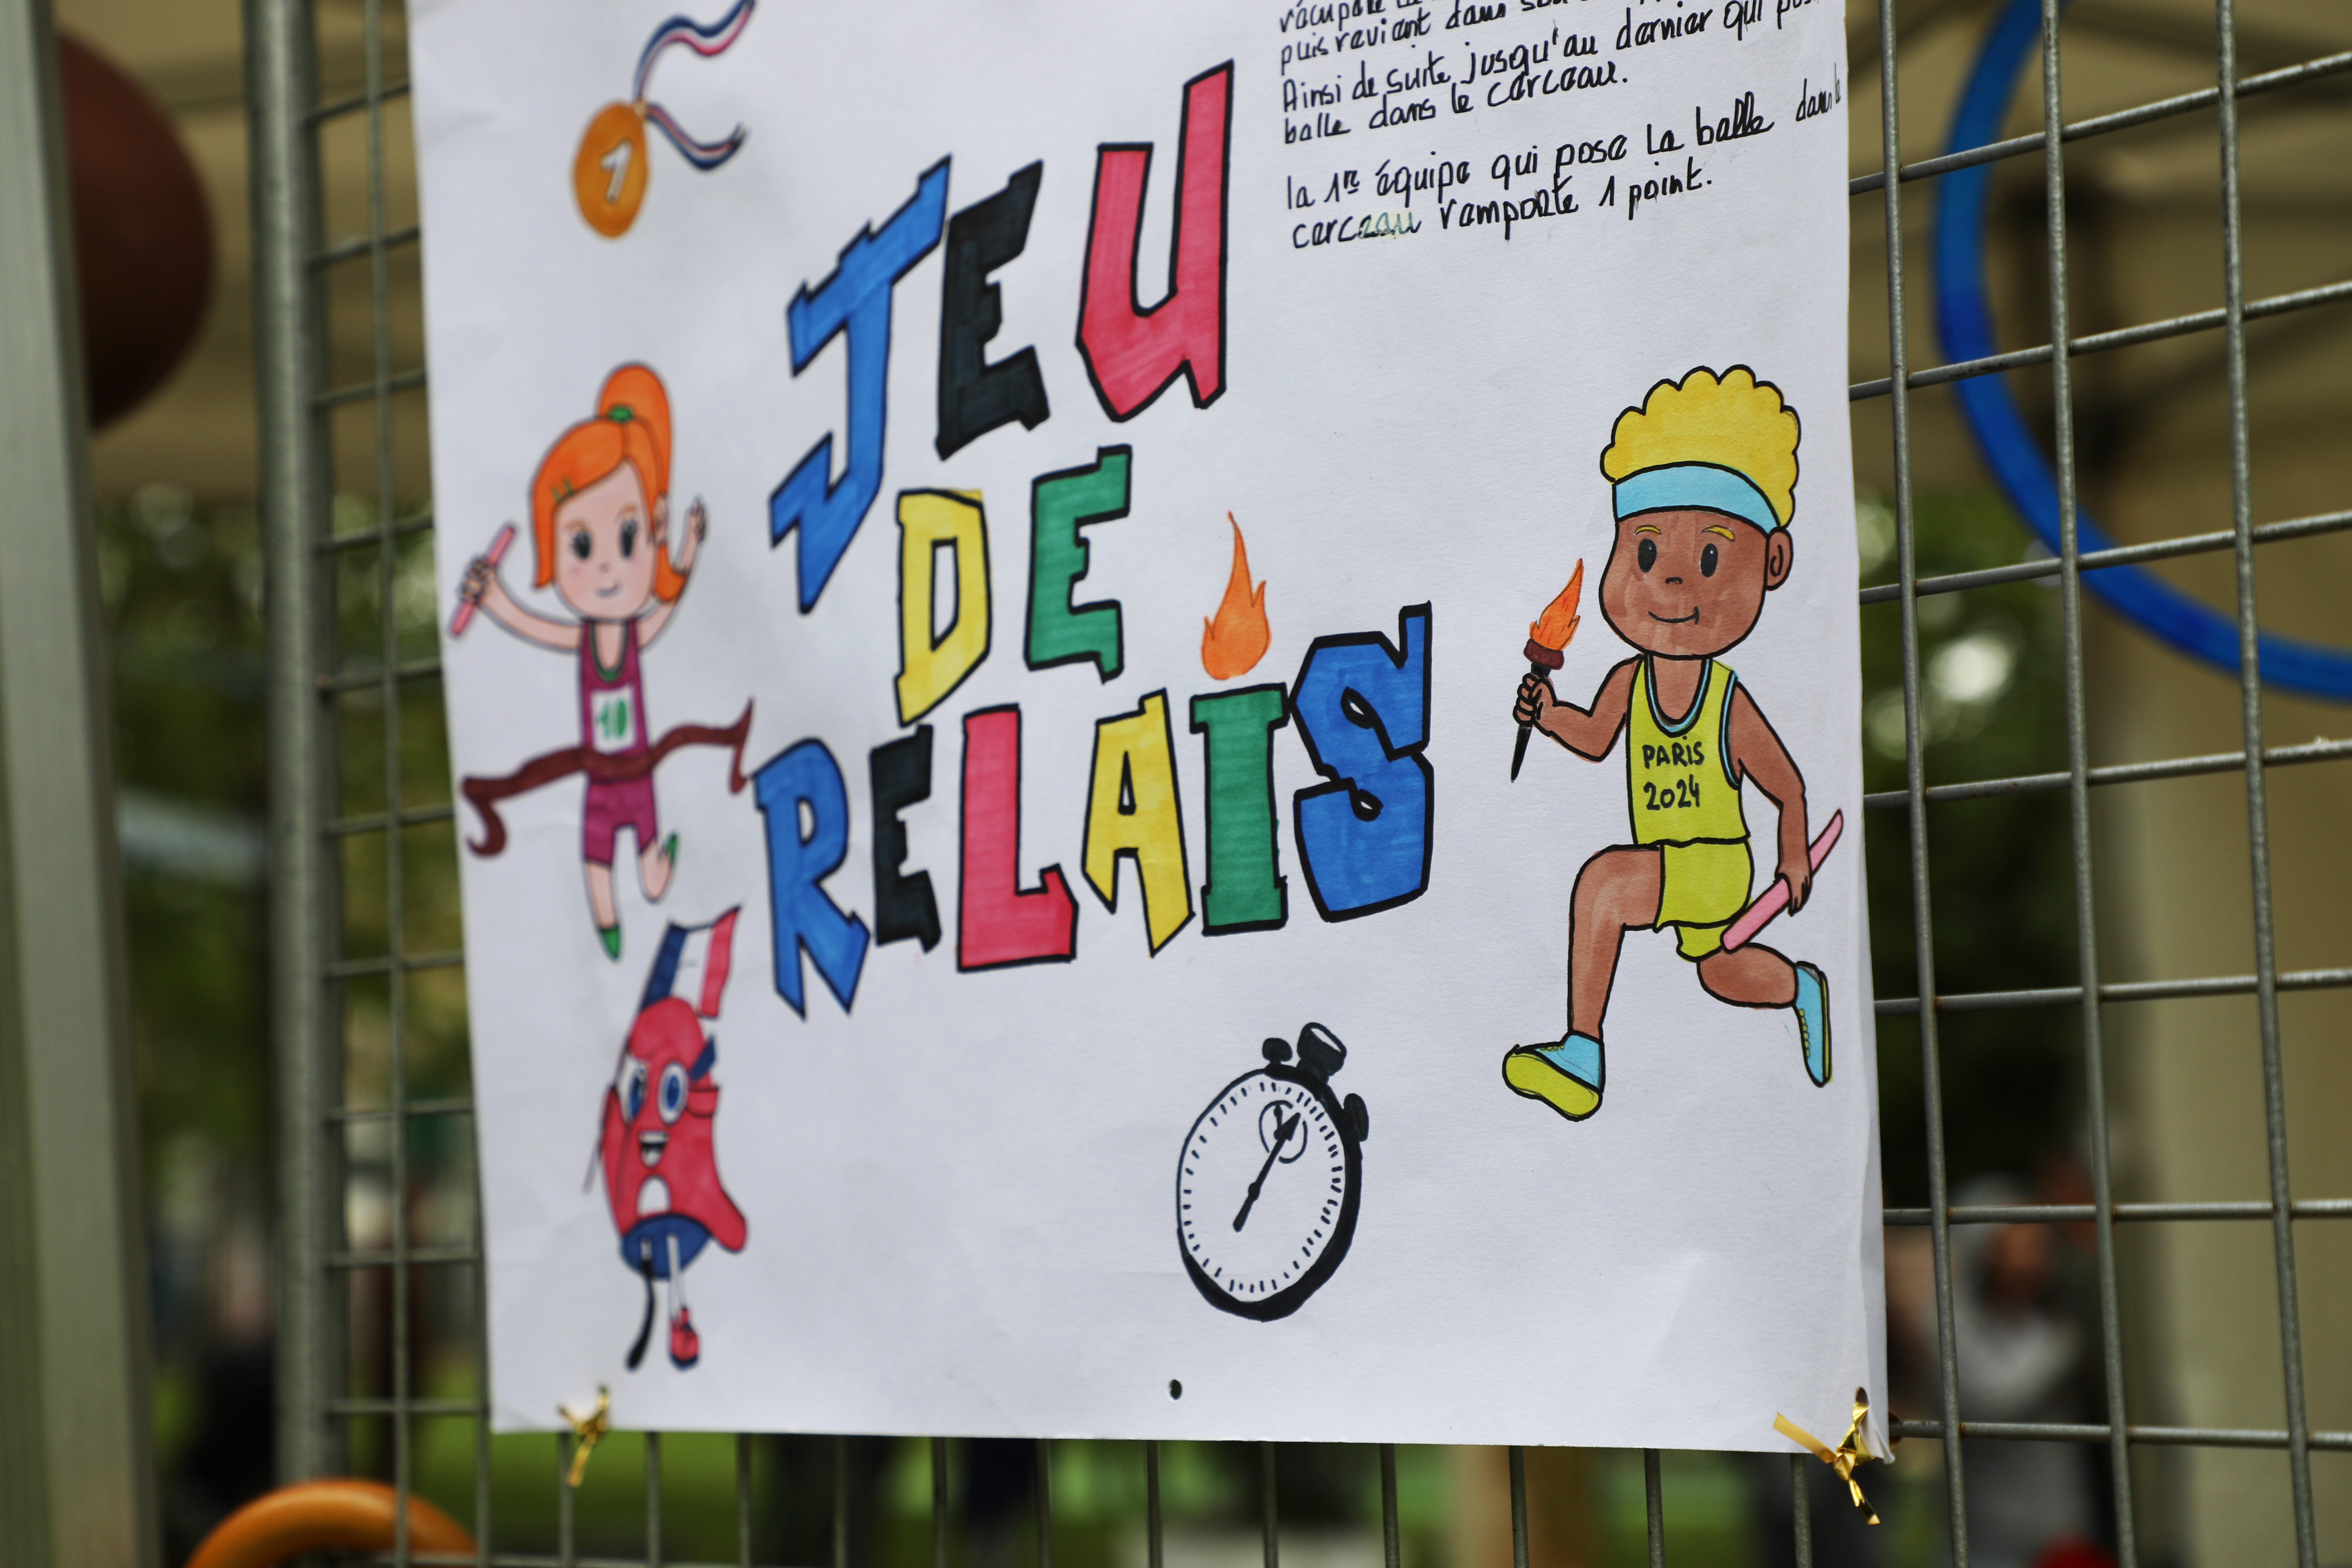 puis revient dans son
Ainsi de suite jusqu'au dernier qui
balle dans le cerceau.
la 1re équipe qui pose la balle dans le
cerceau remporte 1 point.
1
JEU
DE
RELAIS
10
PARIS
2024